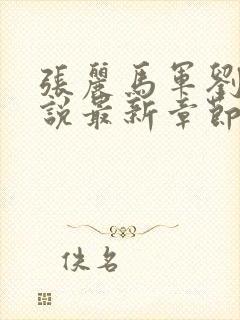 張麗馬軍劉
說最新章節
佚名